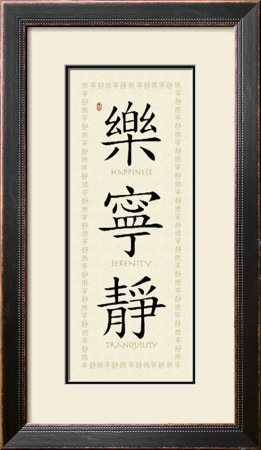 樂
HAPPINESS
寧
SERENITY
靜
TRANQUILITY